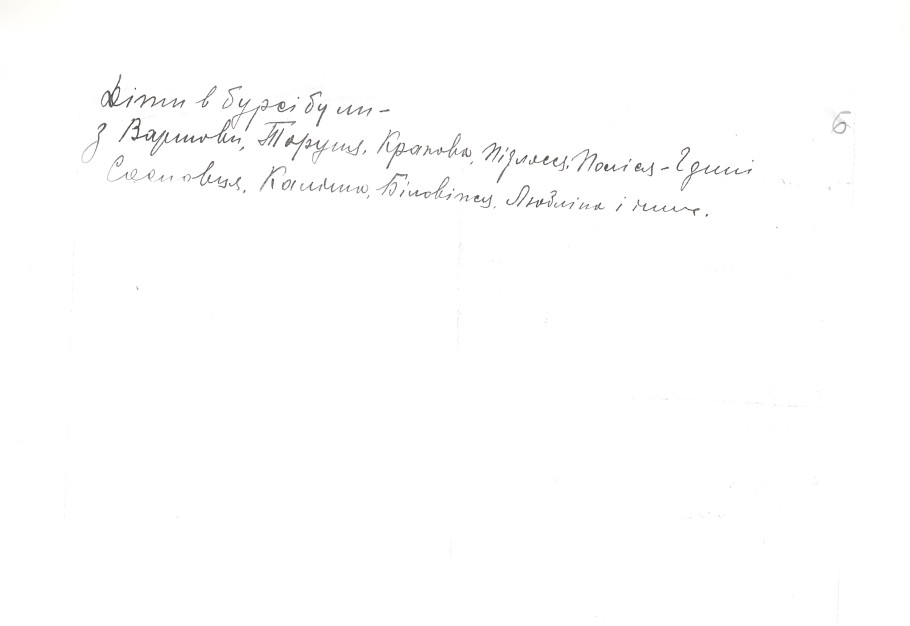 Діти в бурсі були –
з Варшови, Торуня, Кракова, Підлясся, Полісся – Гдині
Сосновця, Каліша, Біловіжа, Люблина і інше.
6